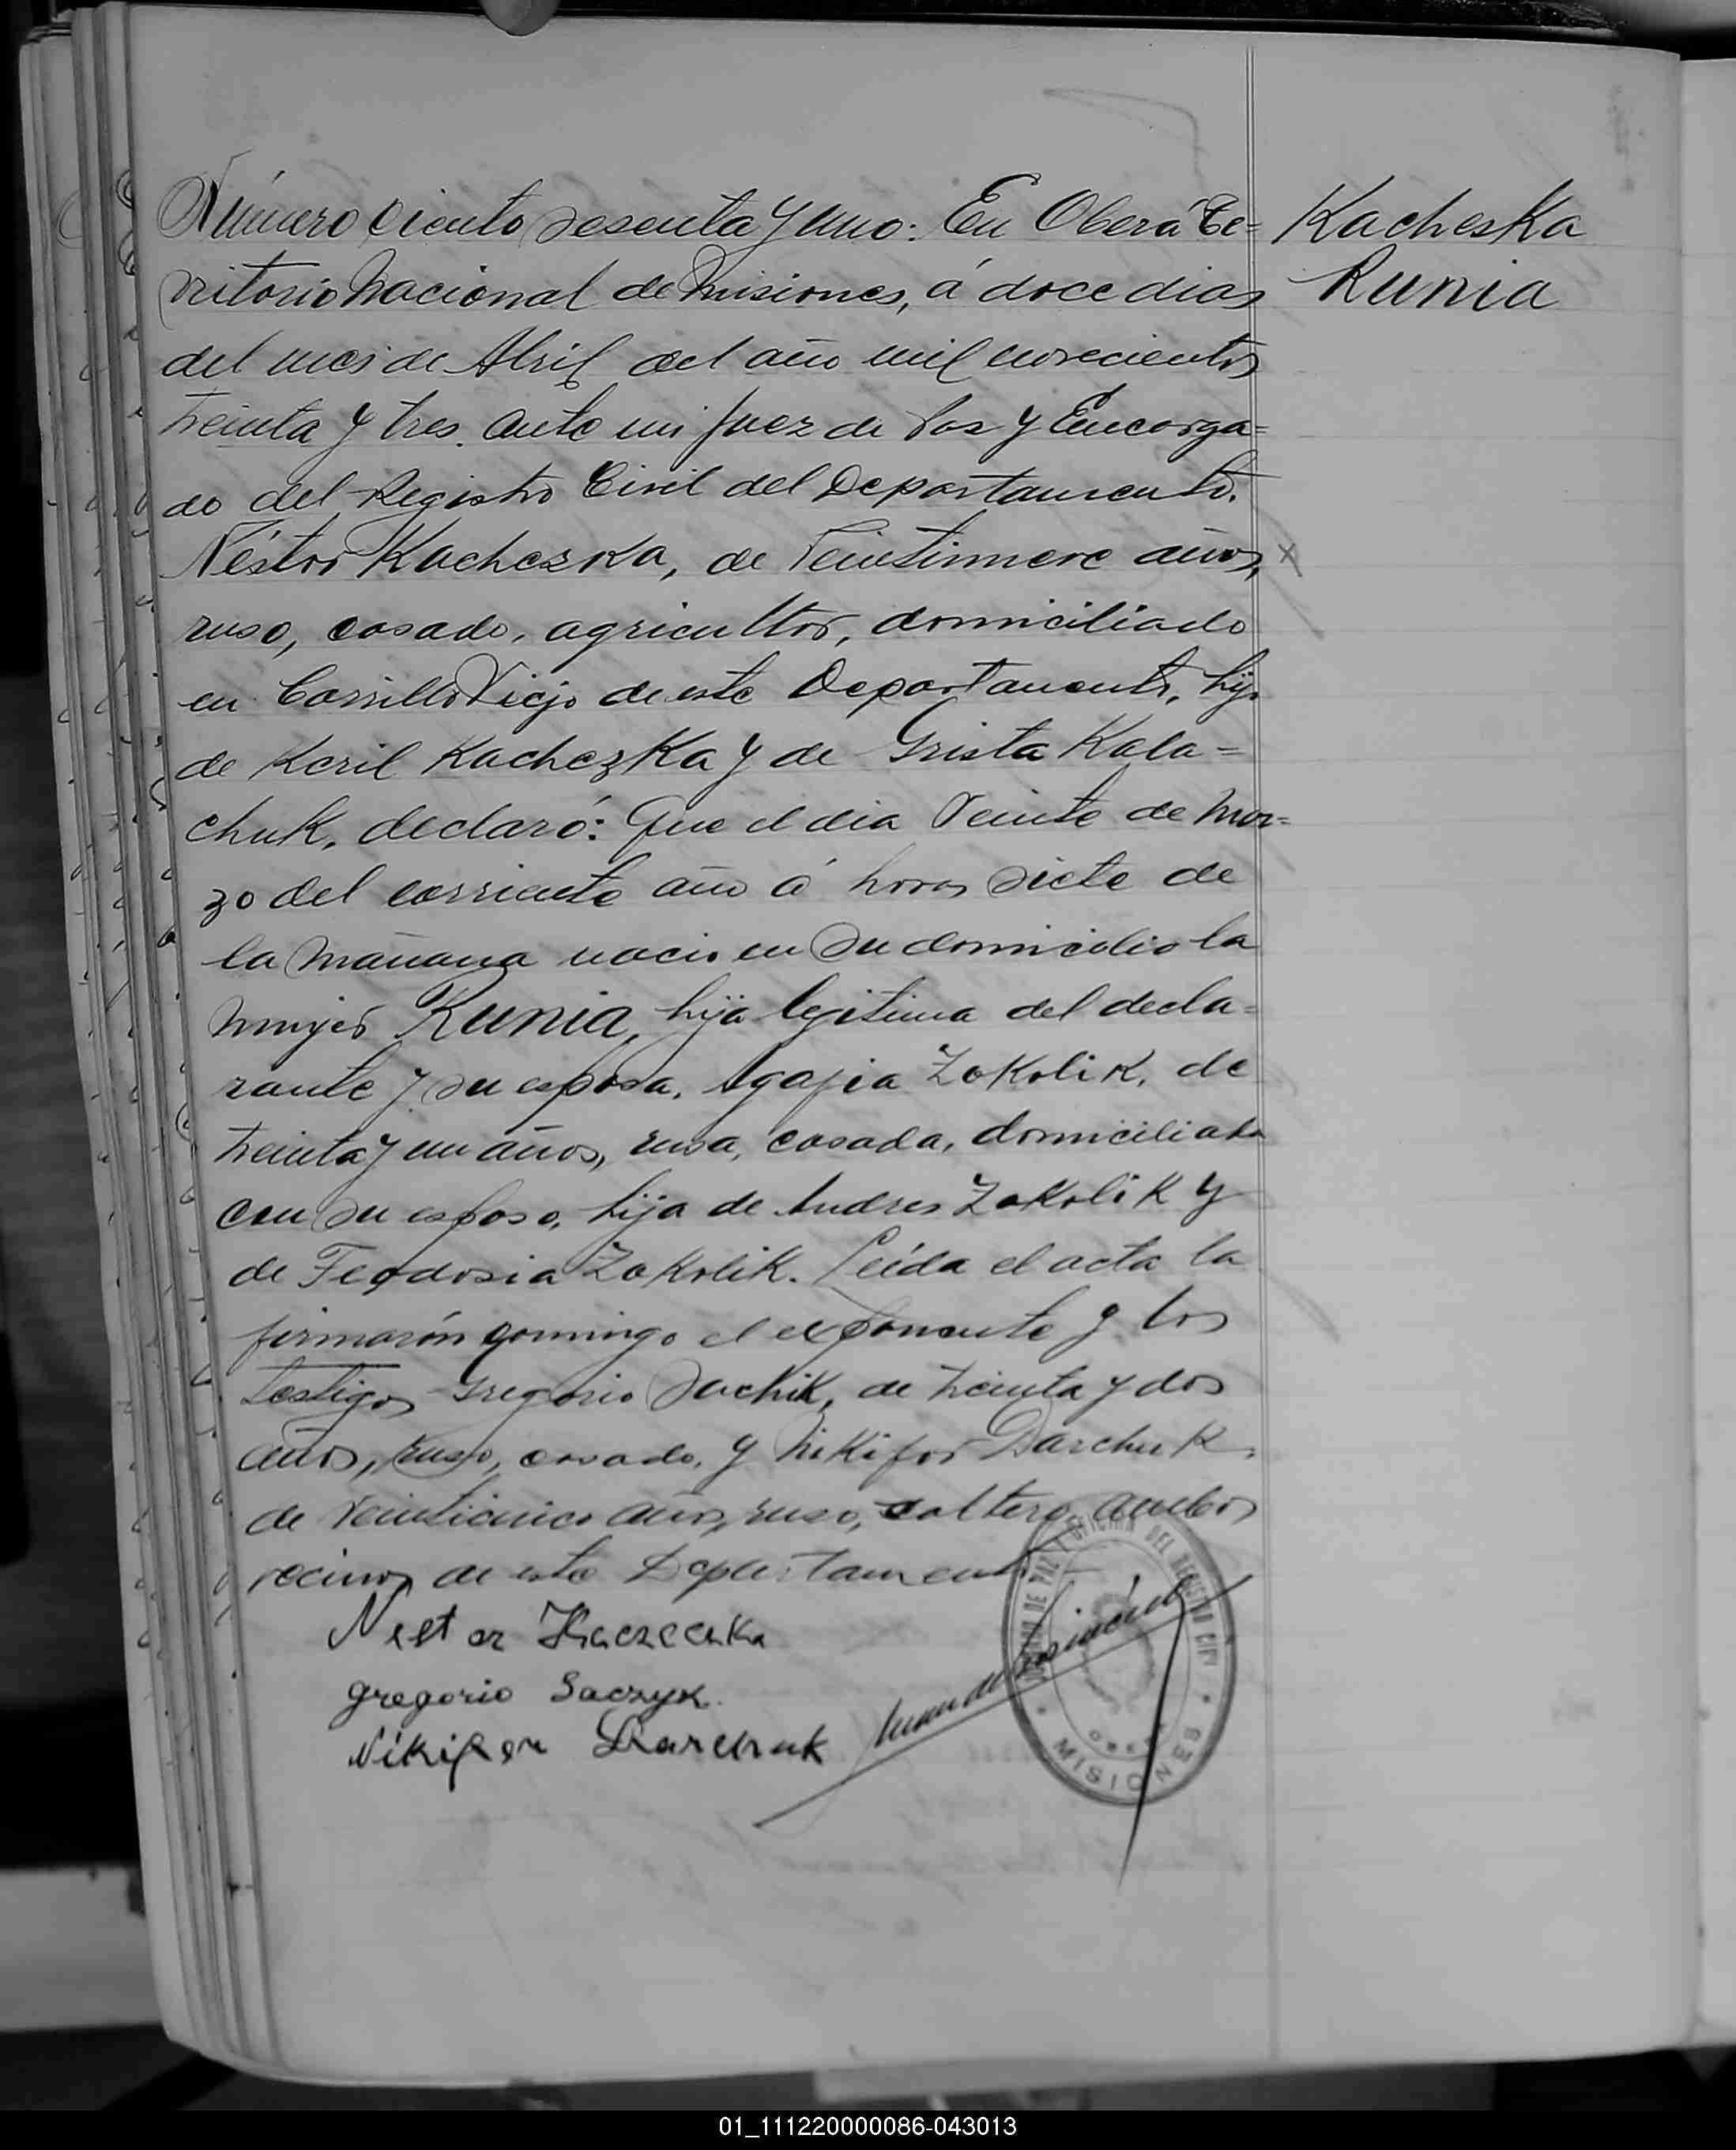 Número ciento sesenta y uno: En Oberá Te=
rritorio Nacional de Misiones, á doce dias
del mes de Abril del año mil novecientos
treinta y tres. ante mi Juez de Paz y Encarga=
do del Registro Civil del Departamento.
Néstor Kachezka, de veintinueve años,
ruso, casado, agricultor, domiciliado
en Cerrillo Viejo de este Departamento, hijo
de Keril Kachezka y de Grista Kala=
chuk, declaró: Que el dia veinte de Mar=
zo del corriente año á horas siete de
la mañana nacio en su domicilio la
mujer Runia, hija legitima del decla=
rante y su esposa, Agafia Zokolik, de
treinta y un años, rusa, casada, domiciliada
con su esposo, hija de Andres Zokolik y
de Feodosia Zokolik. Leída el acta la
firmarón conmigo el exponente y los
testigos Gregorio Sachik, de treinta y dos
años, ruso, casado, y Nikifor Darchuk,
de veinticinco años, ruso, soltero, ambos
vecinos de este Departamento
Nestor Kaczeczka
gregorio Saczyk.
Nikifor Darchuk
OFICINA DEL REGISTRO CIVIL
DE PAZ
OBERA
MISIONES
Kacheska
Runia
01_111220000086-043013